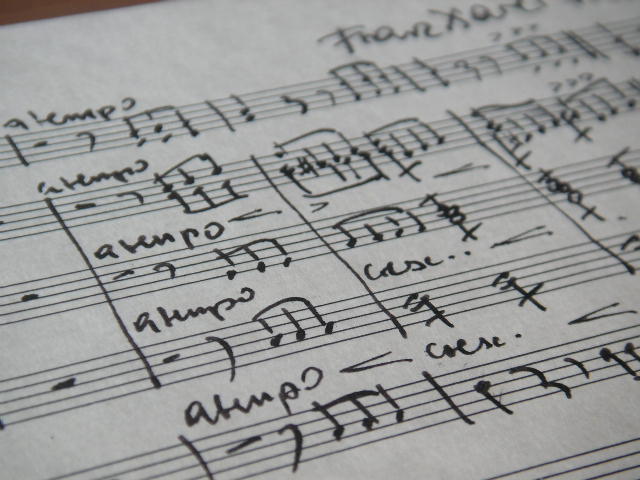 Franz Xaver
a tempo
a tempo
a tempo
cresc..
a tempo
cresc.
a tempo